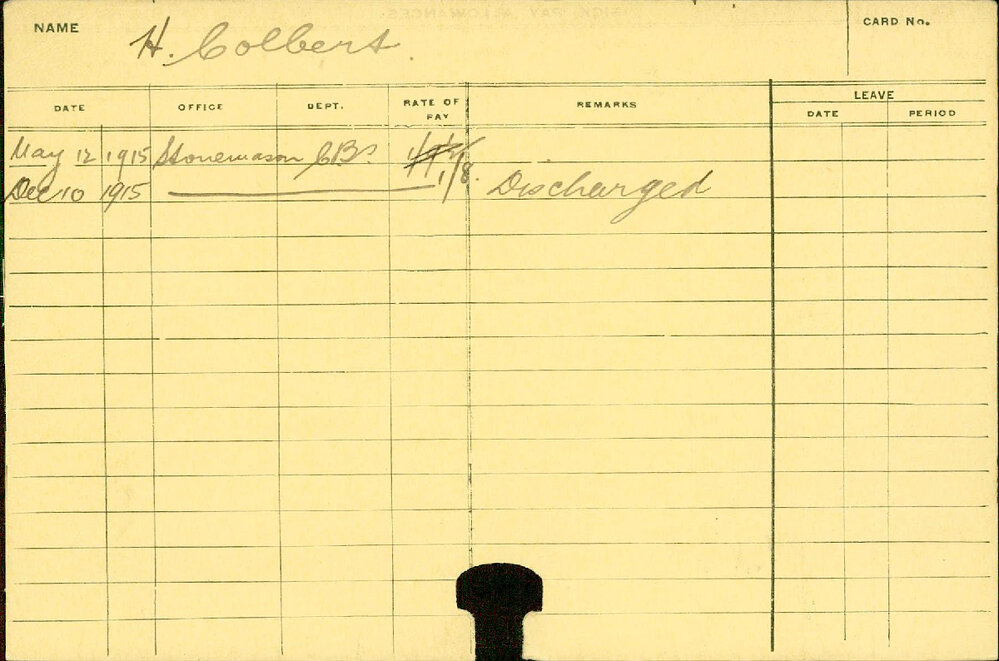 NAME H. Colbert CARD No.
DATE OFFICE DEPT. RATE OF PAY REMARKS LEAVE
DATE PERIOD
May 12 1915 Stonemason
Dec 10 1915 1/8. Discharged